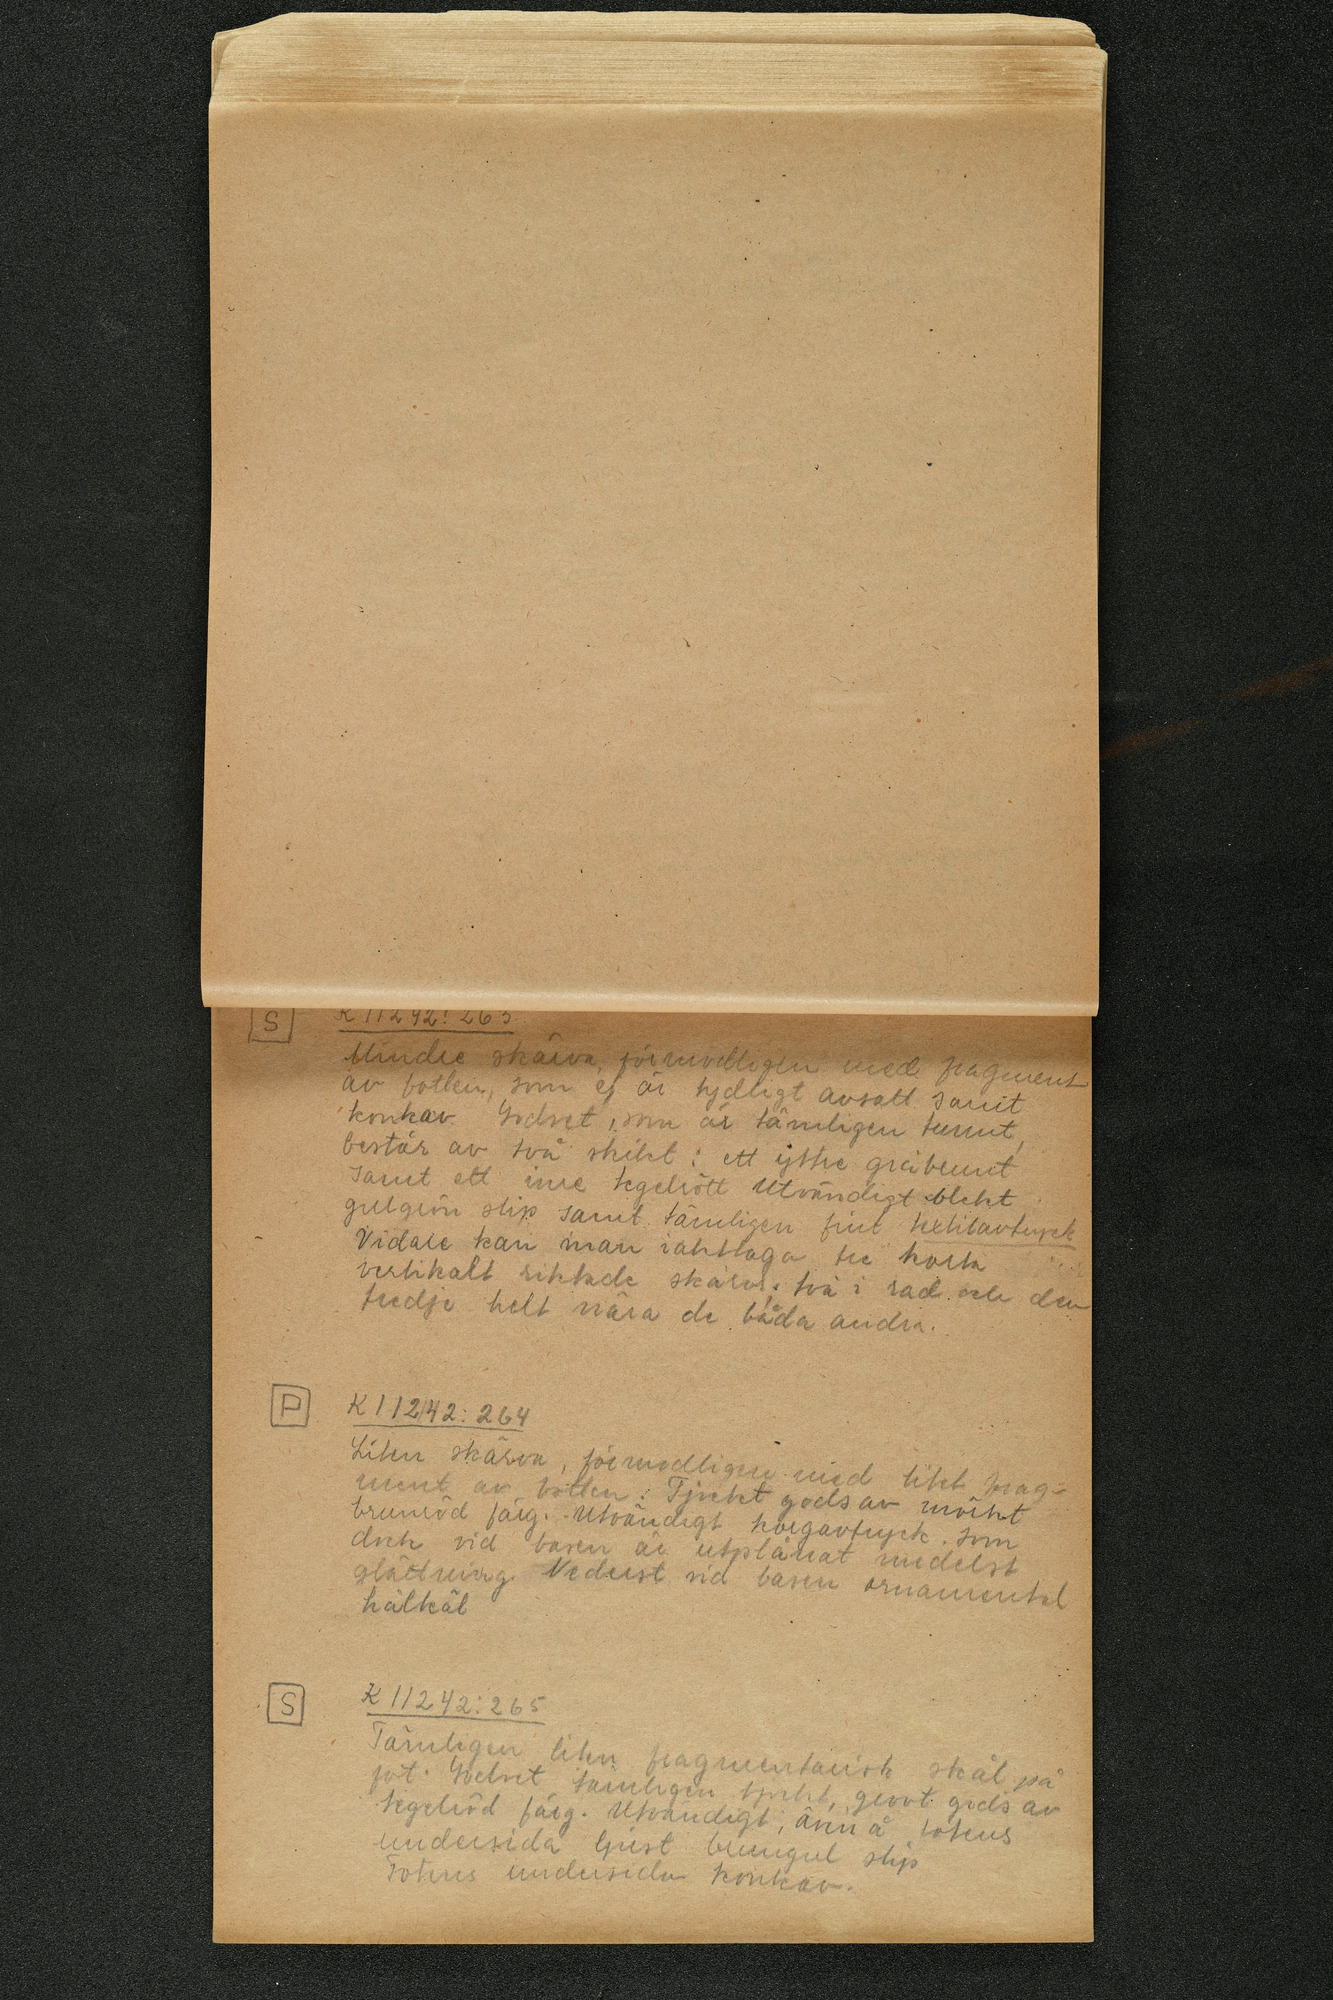 S K 11242: 263
Mindre skärva, förmodligen med fragment
av botten, som ej är tydligt avsatt samt
konkav. Godset, som är tämligen tunnt,
består av två skikt: ett yttre gråbrunt
samt ett inre tegelrött Utvändigt blekt
gulgrön slip samt tämligen fint textilavtryck
Vidare kan man iakttaga tre korta
vertikalt riktade skåror: två i rad och den
tredje helt nära de båda andra.
P K 11242: 264
Liten skärva, förmodligen med litet frag-
ment av botten: Tjockt gods av mörkt
brunröd färg. Utvändigt korgavtryck som
dock vid basen är utplånat medelst
glättning Nederst vid basen ornamental
hålkäl
S K 11242: 265
Tämligen liten fragmentarisk skål på
fot. Godset tämligen tjockt, grovt gods av
tegelröd färg. Utvändigt, även å fotens
undersida ljust brungul slip
Fotens undersida konkav.